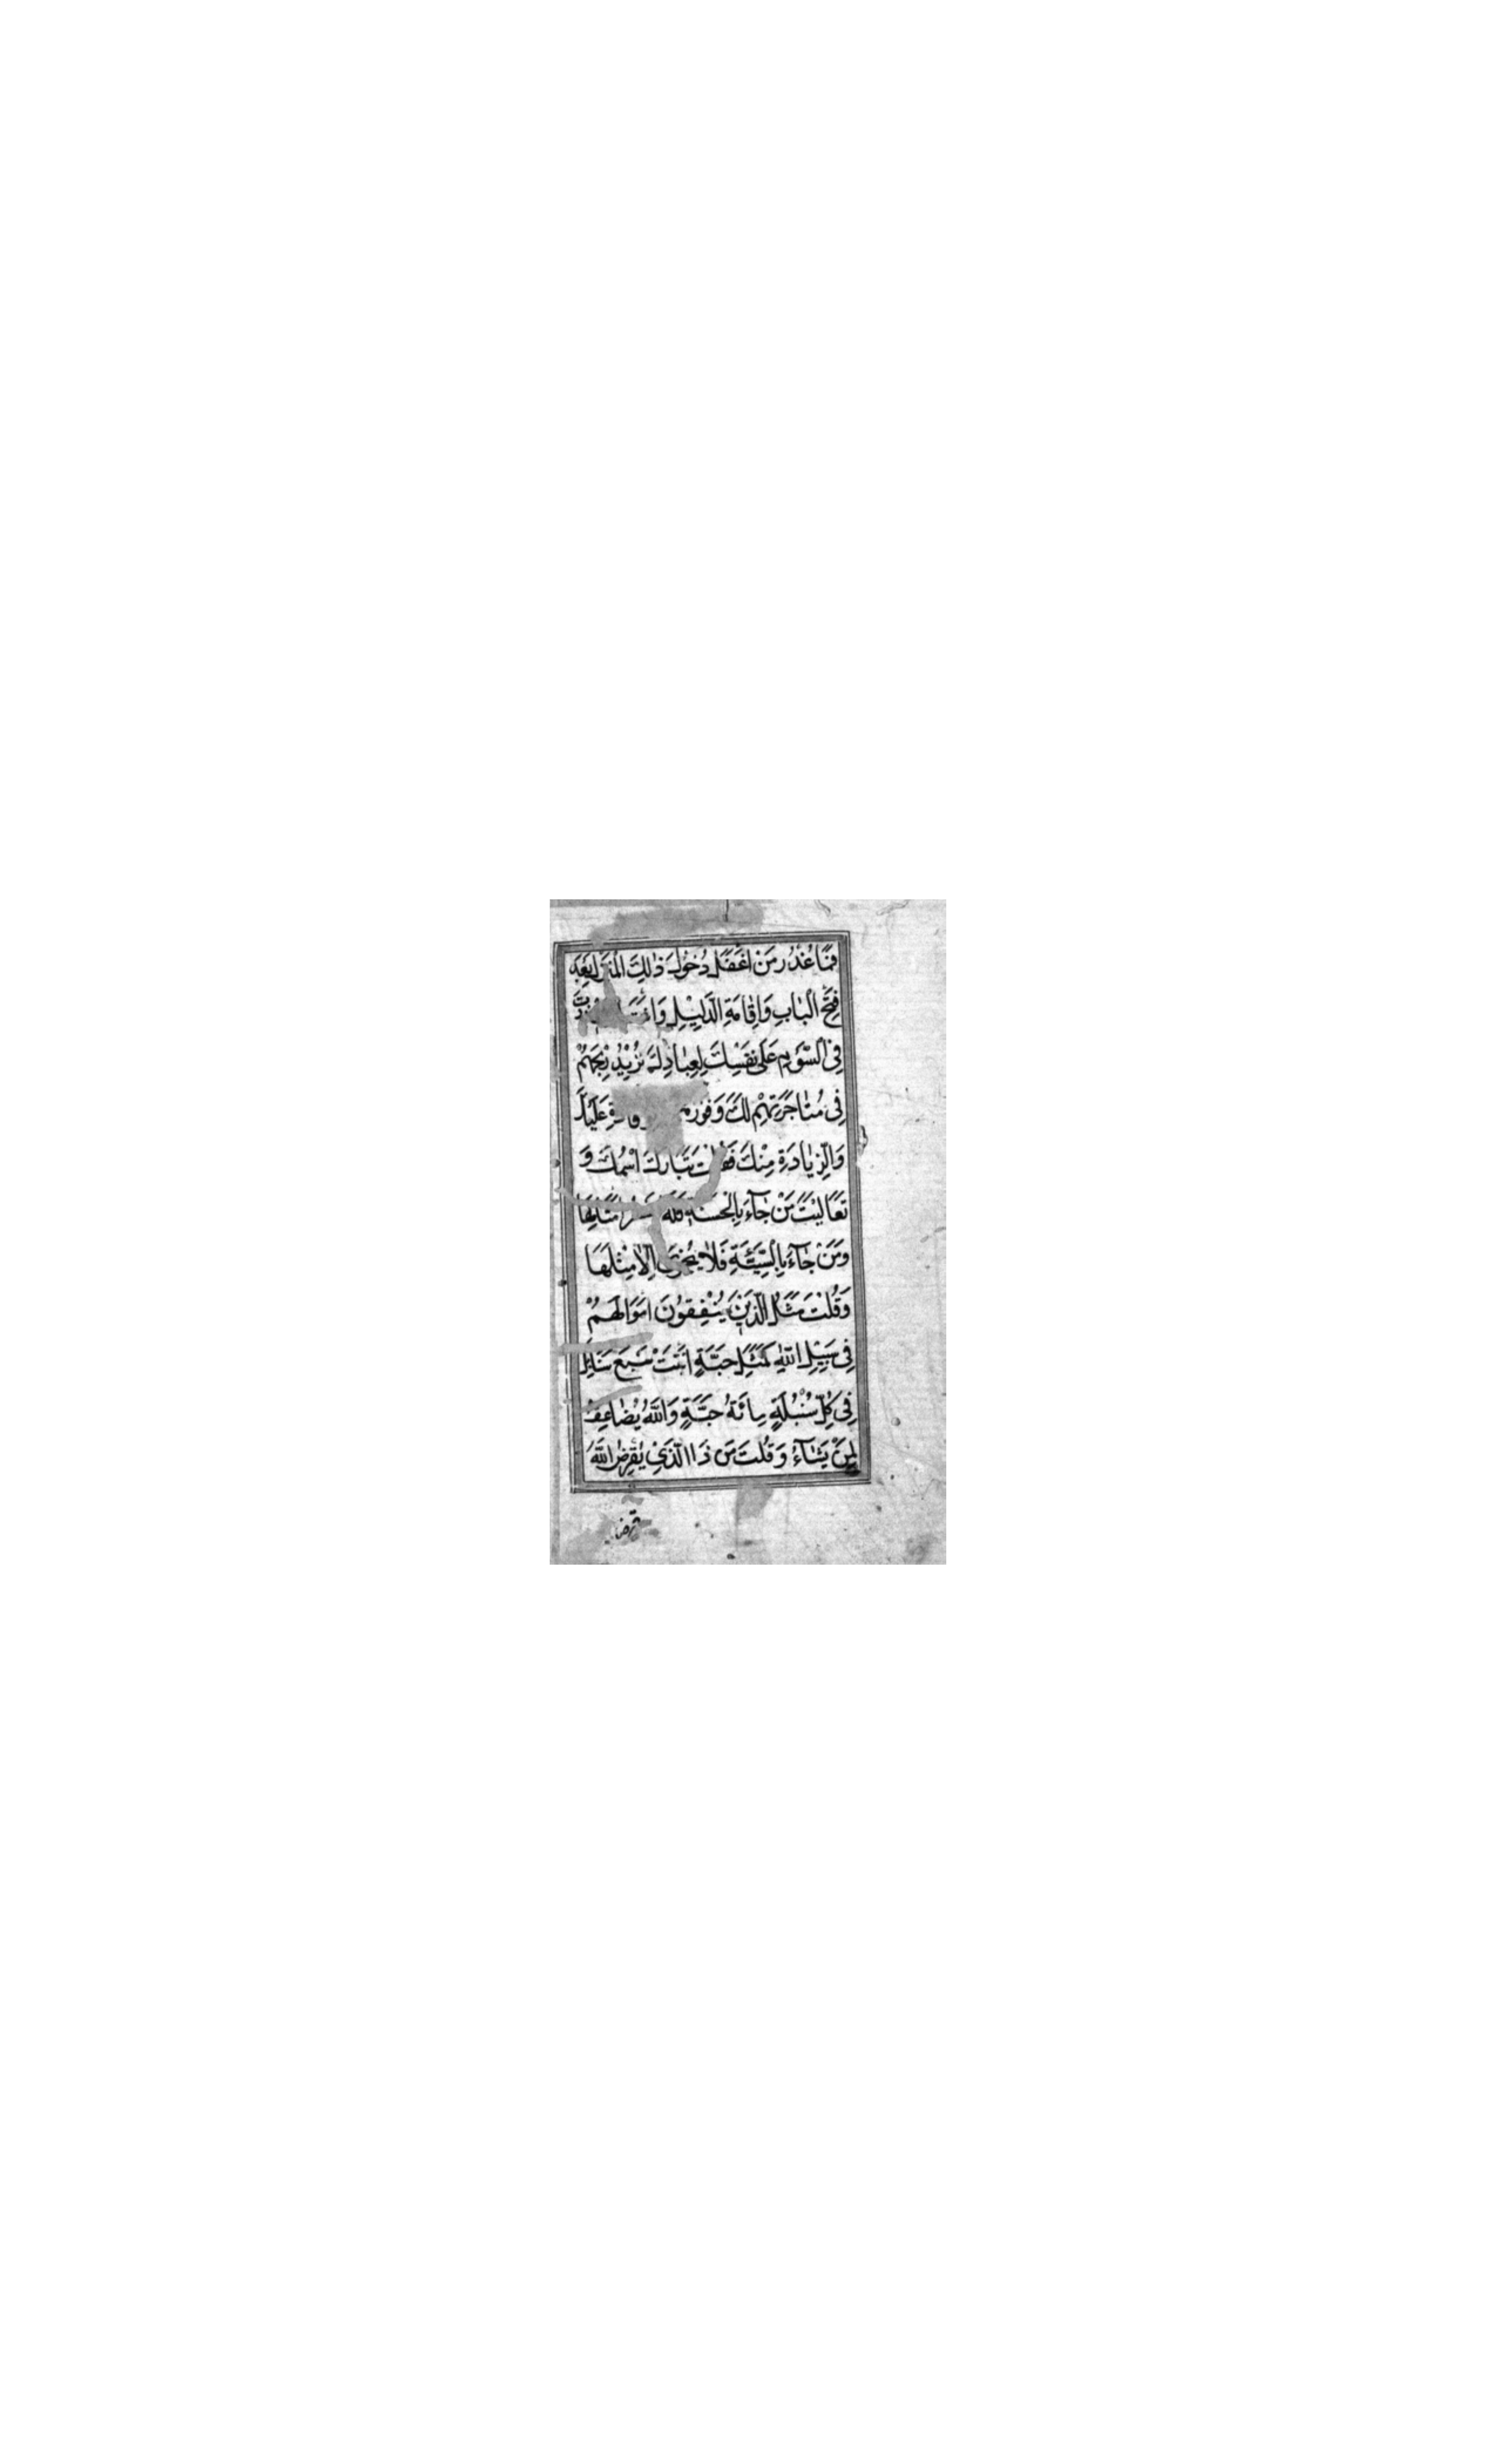 فَمَا عُذْرُ مَنْ اَغْفَلَ دُخُولَ ذٰلِكَ الْمَنْزِلِ بَعْدَ
فَتْحِ الْبَابِ وَاِقَامَةِ الدَّلِيْلِ وَاَنْتَ
فِى السَّوْمِ عَلٰى نَفْسِكَ لِعِبَادِكَ تُرِيْدُ رِبْحَهُمْ
فِى مُتَاجَرَتِهِمْ لَكَ وَفَوْزَهُمْ عَلَيْكَ
وَالزِّيَادَةِ مِنْكَ فَقُلْتَ تَبَارَكَ اسْمُكَ وَ
تَعَالَيْتَ مَنْ جَآءَ بِالْحَسَنَةِ فَلَهُ عَشْرُ اَمْثَالِهَا
وَمَنْ جَآءَ بِالسَّيِّئَةِ فَلَا يُجْزٰى اِلَّا مِثْلَهَا
وَقُلْتَ مَثَلُ الَّذِيْنَ يُنْفِقُوْنَ اَمْوَالَهُمْ
فِى سَبِيْلِ اللّٰهِ كَمَثَلِ حَبَّةٍ اَنْبَتَتْ سَبْعَ سَنَابِلَ
فِى كُلِّ سُنْبُلَةٍ مِائَةُ حَبَّةٍ وَاللّٰهُ يُضَاعِفُ
لِمَنْ يَشَآءُ وَقُلْتَ مَنْ ذَا الَّذِىْ يُقْرِضُ اللّٰهَ
قرضا